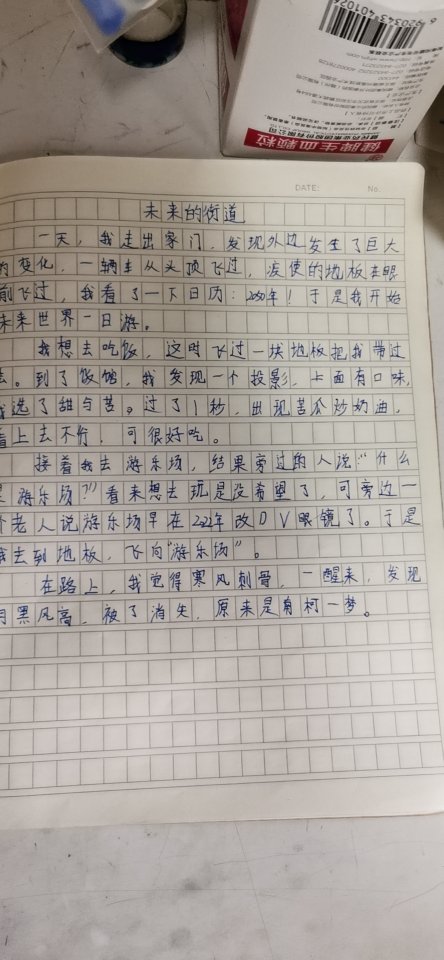 6920343401026
健脾生血颗粒
DATE:
No:
未来的街道
一天，我走出家门，发现外边发生了巨大
的变化，一辆车从头顶飞过，疲使的地板在眼
前飞过，我看了一下日历：2050年！于是我开始
未来世界一日游。
我想去吃饭，这时飞过一块地板把我带过
去。到了饭馆，我发现一个投影，上面有口味，
我选了甜与苦。过了1秒，出现苦瓜炒奶油，
看上去不行，可很好吃。
接着我去游乐场，结果旁过的人说："什么
是游乐场？"看来想去玩是没希望了，可旁边一
个老人说游乐场早在2022年改DV眼镜了。于是
我去到地板，飞向"游乐场"。
在路上，我觉得寒风刺骨，一醒来，发现
月黑风高，被子消失，原来是南柯一梦。